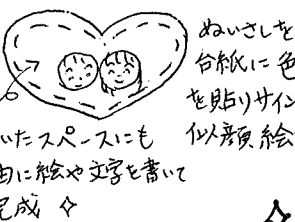 ぬいさしを
台紙に色
を貼りサイン
似顔絵
いたスペースにも
由に絵や文字を書いて
完成